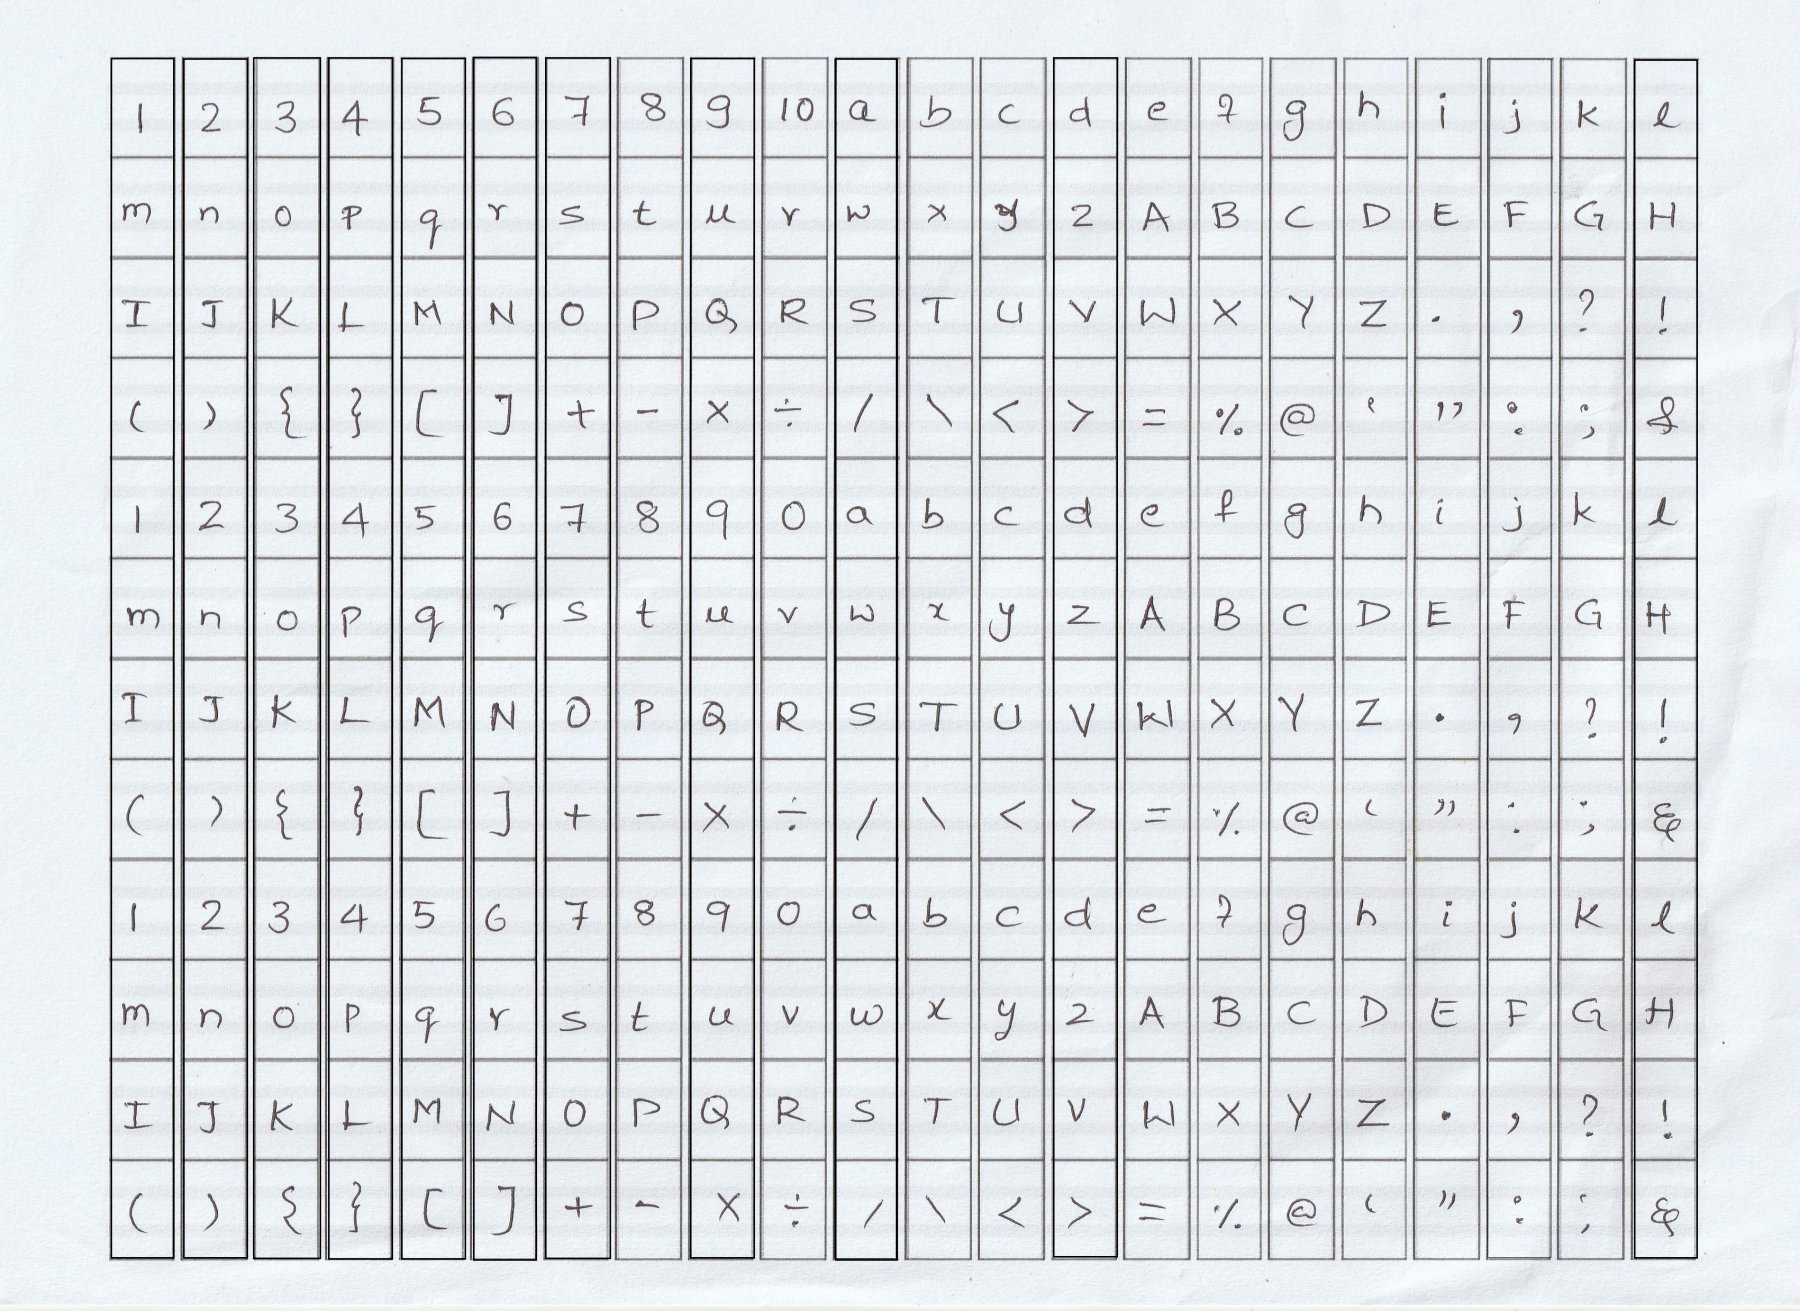 1 2 3 4 5 6 7 8 9 10 a b c d e f g h i j k l
m n o p q r s t u v w x y z A B C D E F G H
I J K L M N O P Q R S T U V W X Y Z . , ? !
( ) { } [ ] + - × ÷ / \ < > = % @ ‘ ” : ; &
1 2 3 4 5 6 7 8 9 0 a b c d e f g h i j k l
m n o p q r s t u v w x y z A B C D E F G H
I J K L M N O P Q R S T U V W X Y Z . , ? !
( ) { } [ ] + - × ÷ / \ < > = % @ ‘ ” : ; &
1 2 3 4 5 6 7 8 9 0 a b c d e f g h i j k l
m n o p q r s t u v w x y z A B C D E F G H
I J K L M N O P Q R S T U V W X Y Z . , ? !
( ) { } [ ] + - × ÷ / \ < > = % @ ‘ ” : ; &